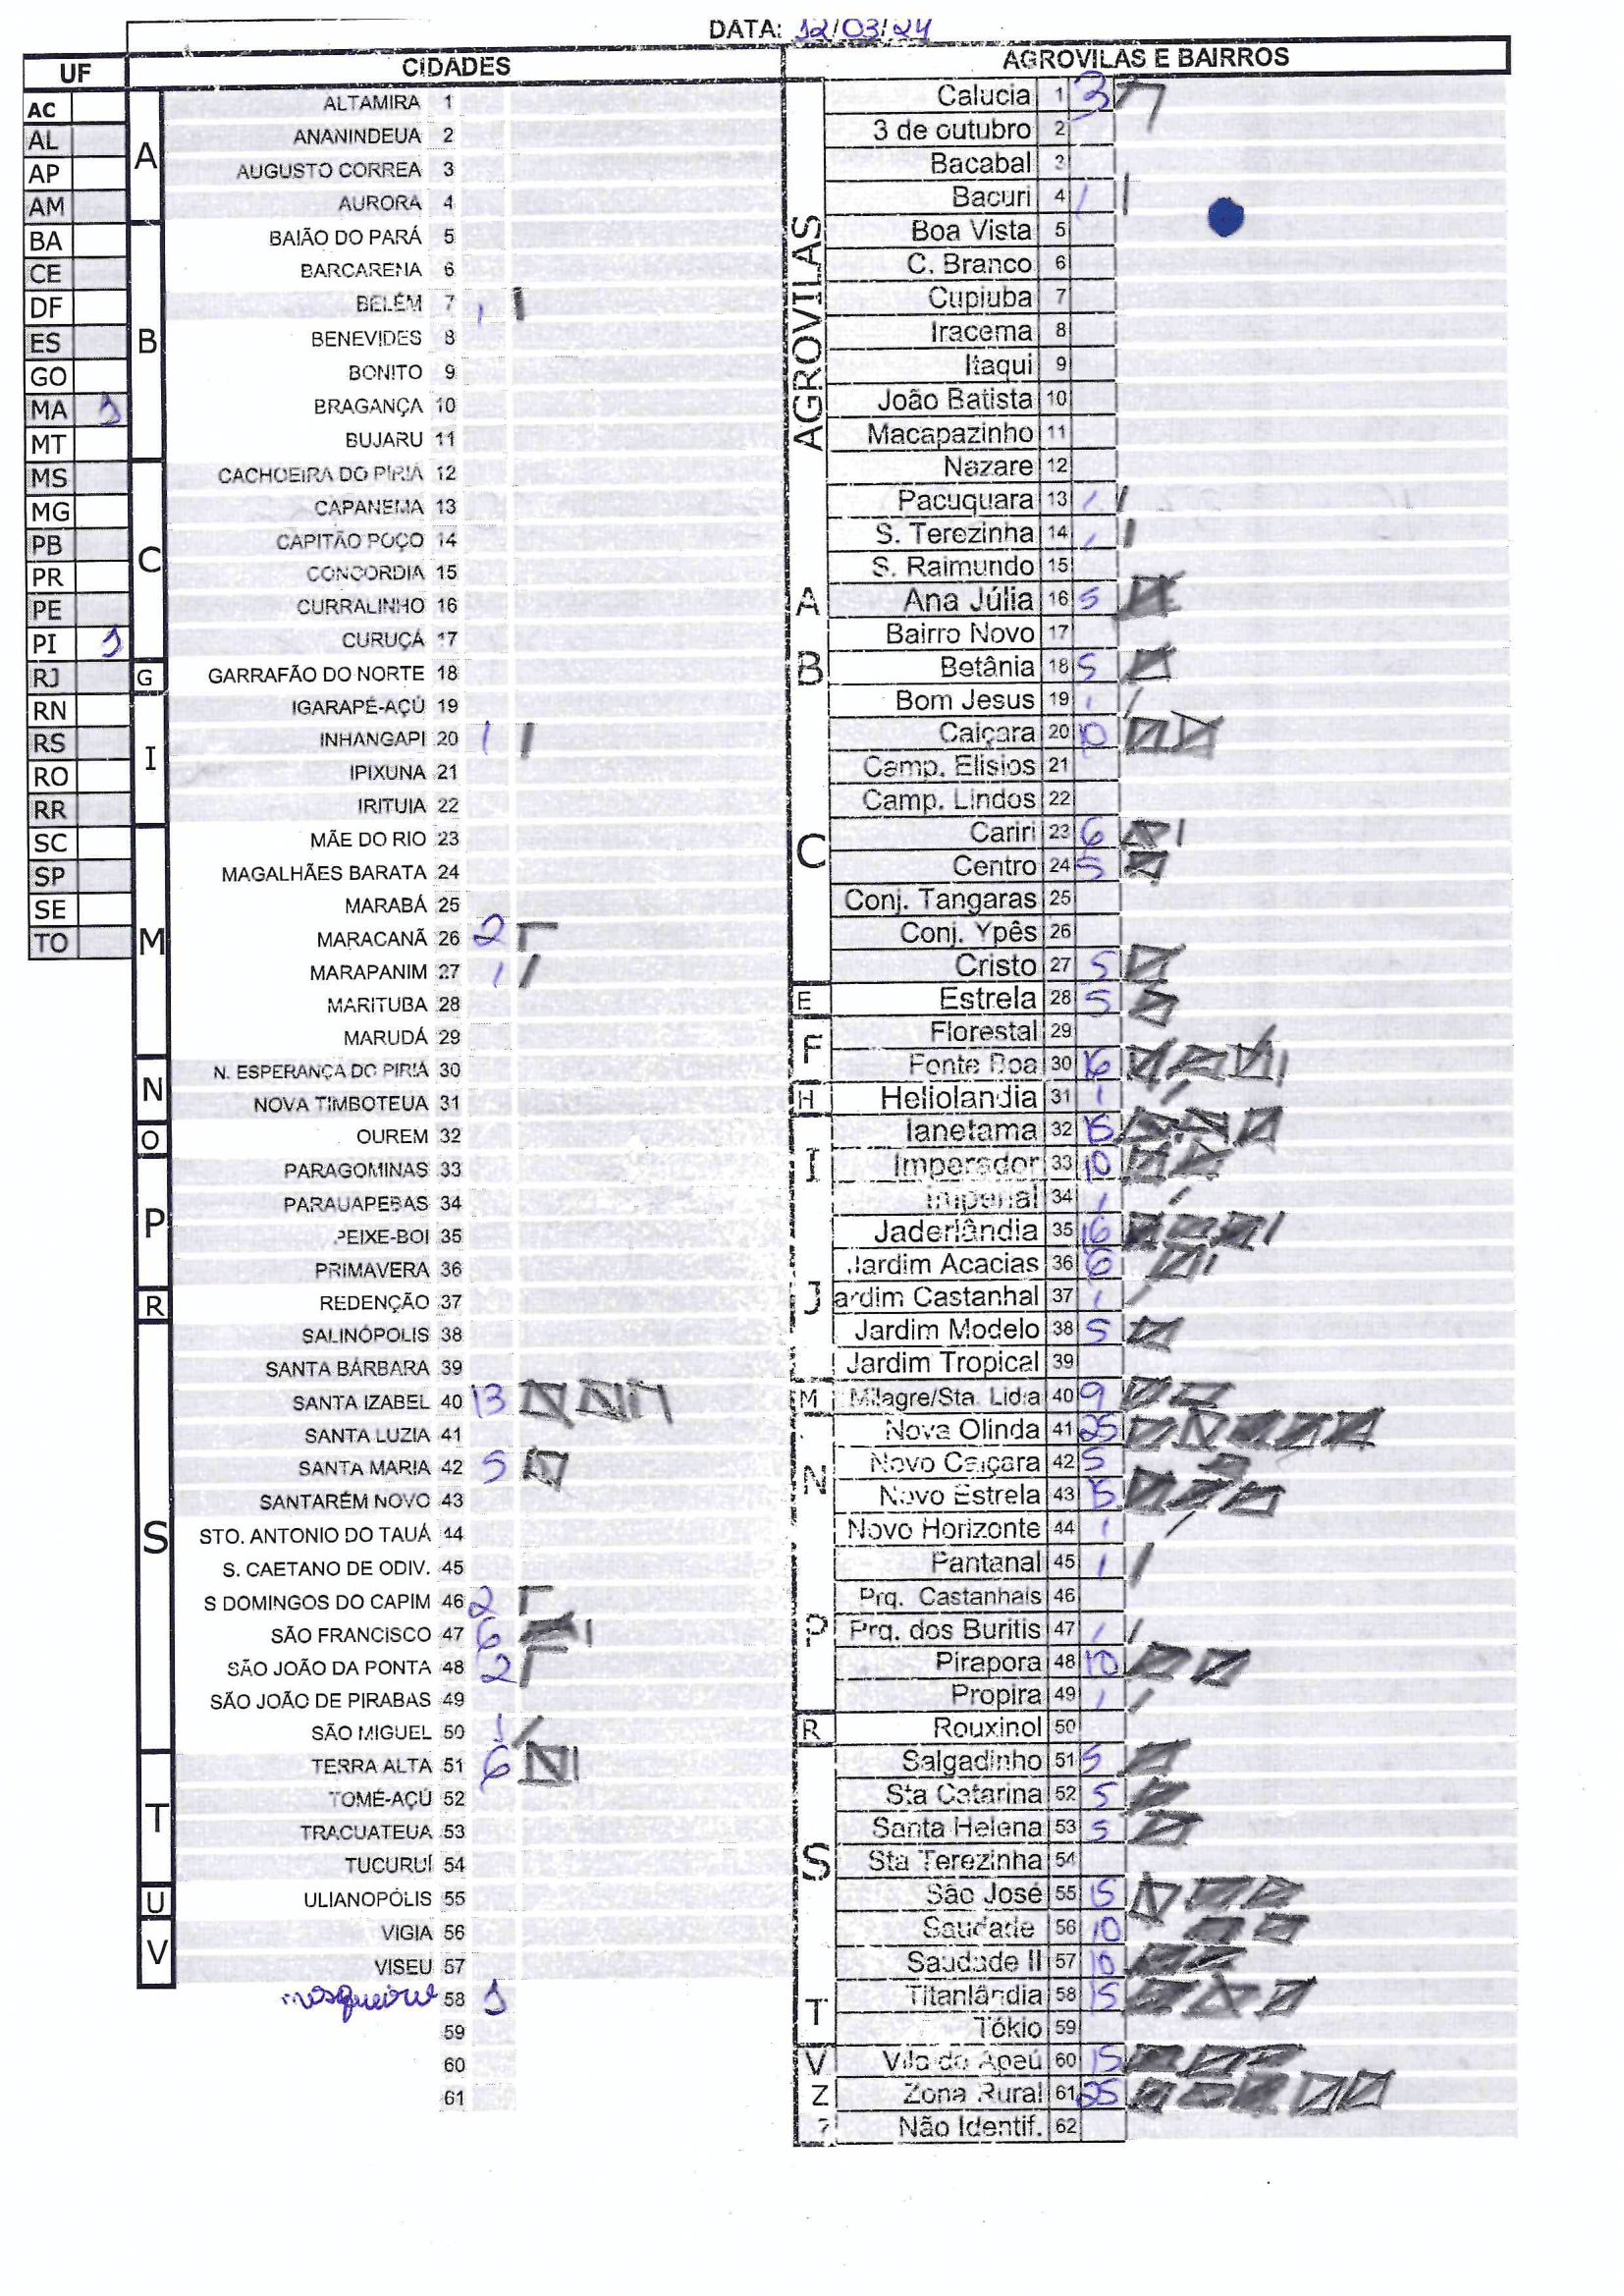 DATA: 12/03/24
UF
CIDADES
AGROVILAS E BAIRROS
AC
AL
AP
AM
BA
CE
DF
ES
GO
MA 1
MT
MS
MG
PB
PR
PE
PI 1
RJ
RN
RS
RO
RR
SC
SP
SE
TO
A
ALTAMIRA 1
ANANINDEUA 2
AUGUSTO CORREA 3
AURORA 4
B
BAIÃO DO PARÁ 5
BARCARENA 6
BELÉM 7 1
BENEVIDES 8
BONITO 9
BRAGANÇA 10
BUJARU 11
C
CACHOEIRA DO PIRIÁ 12
CAPANEMA 13
CAPITÃO POÇO 14
CONCORDIA 15
CURRALINHO 16
CURUÇÁ 17
G
GARRAFÃO DO NORTE 18
I
IGARAPÉ-AÇÚ 19
INHANGAPI 20 1
IPIXUNA 21
IRITUIA 22
M
MÃE DO RIO 23
MAGALHÃES BARATA 24
MARABÁ 25
MARACANÃ 26 2
MARAPANIM 27 1
MARITUBA 28
MARUDÁ 29
N
N. ESPERANÇA DO PIRIÁ 30
NOVA TIMBOTEUA 31
O
OUREM 32
P
PARAGOMINAS 33
PARAUAPEBAS 34
PEIXE-BOI 35
PRIMAVERA 36
R
REDENÇÃO 37
S
SALINÓPOLIS 38
SANTA BÁRBARA 39
SANTA IZABEL 40 13
SANTA LUZIA 41
SANTA MARIA 42 5
SANTARÉM NOVO 43
STO. ANTONIO DO TAUÁ 44
S. CAETANO DE ODIV. 45
S DOMINGOS DO CAPIM 46 2
SÃO FRANCISCO 47 6
SÃO JOÃO DA PONTA 48 2
SÃO JOÃO DE PIRABAS 49
SÃO MIGUEL 50 1
T
TERRA ALTA 51 6
TOMÉ-AÇÚ 52
TRACUATEUA 53
TUCURUÍ 54
U
ULIANOPÓLIS 55
V
VIGIA 56
VISEU 57
58 1
59
60
61
AGROVILAS
Calucia 1 3
3 de outubro 2
Bacabal 3
Bacuri 4 1
Boa Vista 5
C. Branco 6
Cupiuba 7
Iracema 8
Itaqui 9
João Batista 10
Macapazinho 11
Nazare 12
Pacuquara 13 1
S. Terezinha 14 1
S. Raimundo 15
A
Ana Júlia 16 5
B
Bairro Novo 17
Betânia 18 5
Bom Jesus 19 1
C
Caiçara 20 10
Camp. Elisios 21
Camp. Lindos 22
Cariri 23 6
Centro 24 5
Conj. Tangaras 25
Conj. Ypês 26
Cristo 27 5
E
Estrela 28 5
F
Florestal 29
Fonte Boa 30 16
H
Heliolandia 31 1
I
Ianetama 32 15
Imperador 33 10
Imperial 34 1
J
Jaderlândia 35 16
Jardim Acacias 36 6
ardim Castanhal 37 1
Jardim Modelo 38 5
Jardim Tropical 39
M
Milagre/Sta. Lidia 40 9
N
Nova Olinda 41 25
Novo Caiçara 42 5
Novo Estrela 43 15
Novo Horizonte 44 1
P
Pantanal 45 1
Prq. Castanhais 46
Prq. dos Buritis 47 1
Pirapora 48 10
Propira 49 1
R
Rouxinol 50
S
Salgadinho 51 5
Sta Catarina 52 5
Santa Helena 53 5
Sta Terezinha 54
São José 55 15
Saudade 56 10
Saudade II 57 10
T
Titanlândia 58 15
Tókio 59
V
Vila do Apeú 60 15
Z
Zona Rural 61 25
?
Não Identif. 62